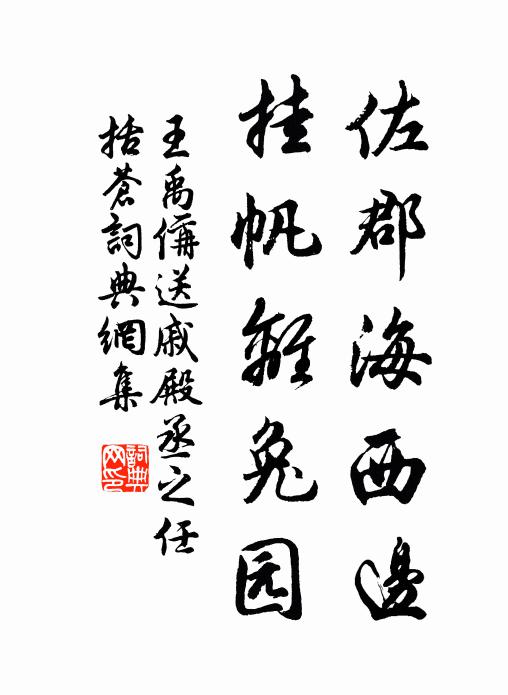 佐郡海西邊
挂帆離兔园
王禹偁送戚殿丞之任
括蒼詞典網集
詞典
网印